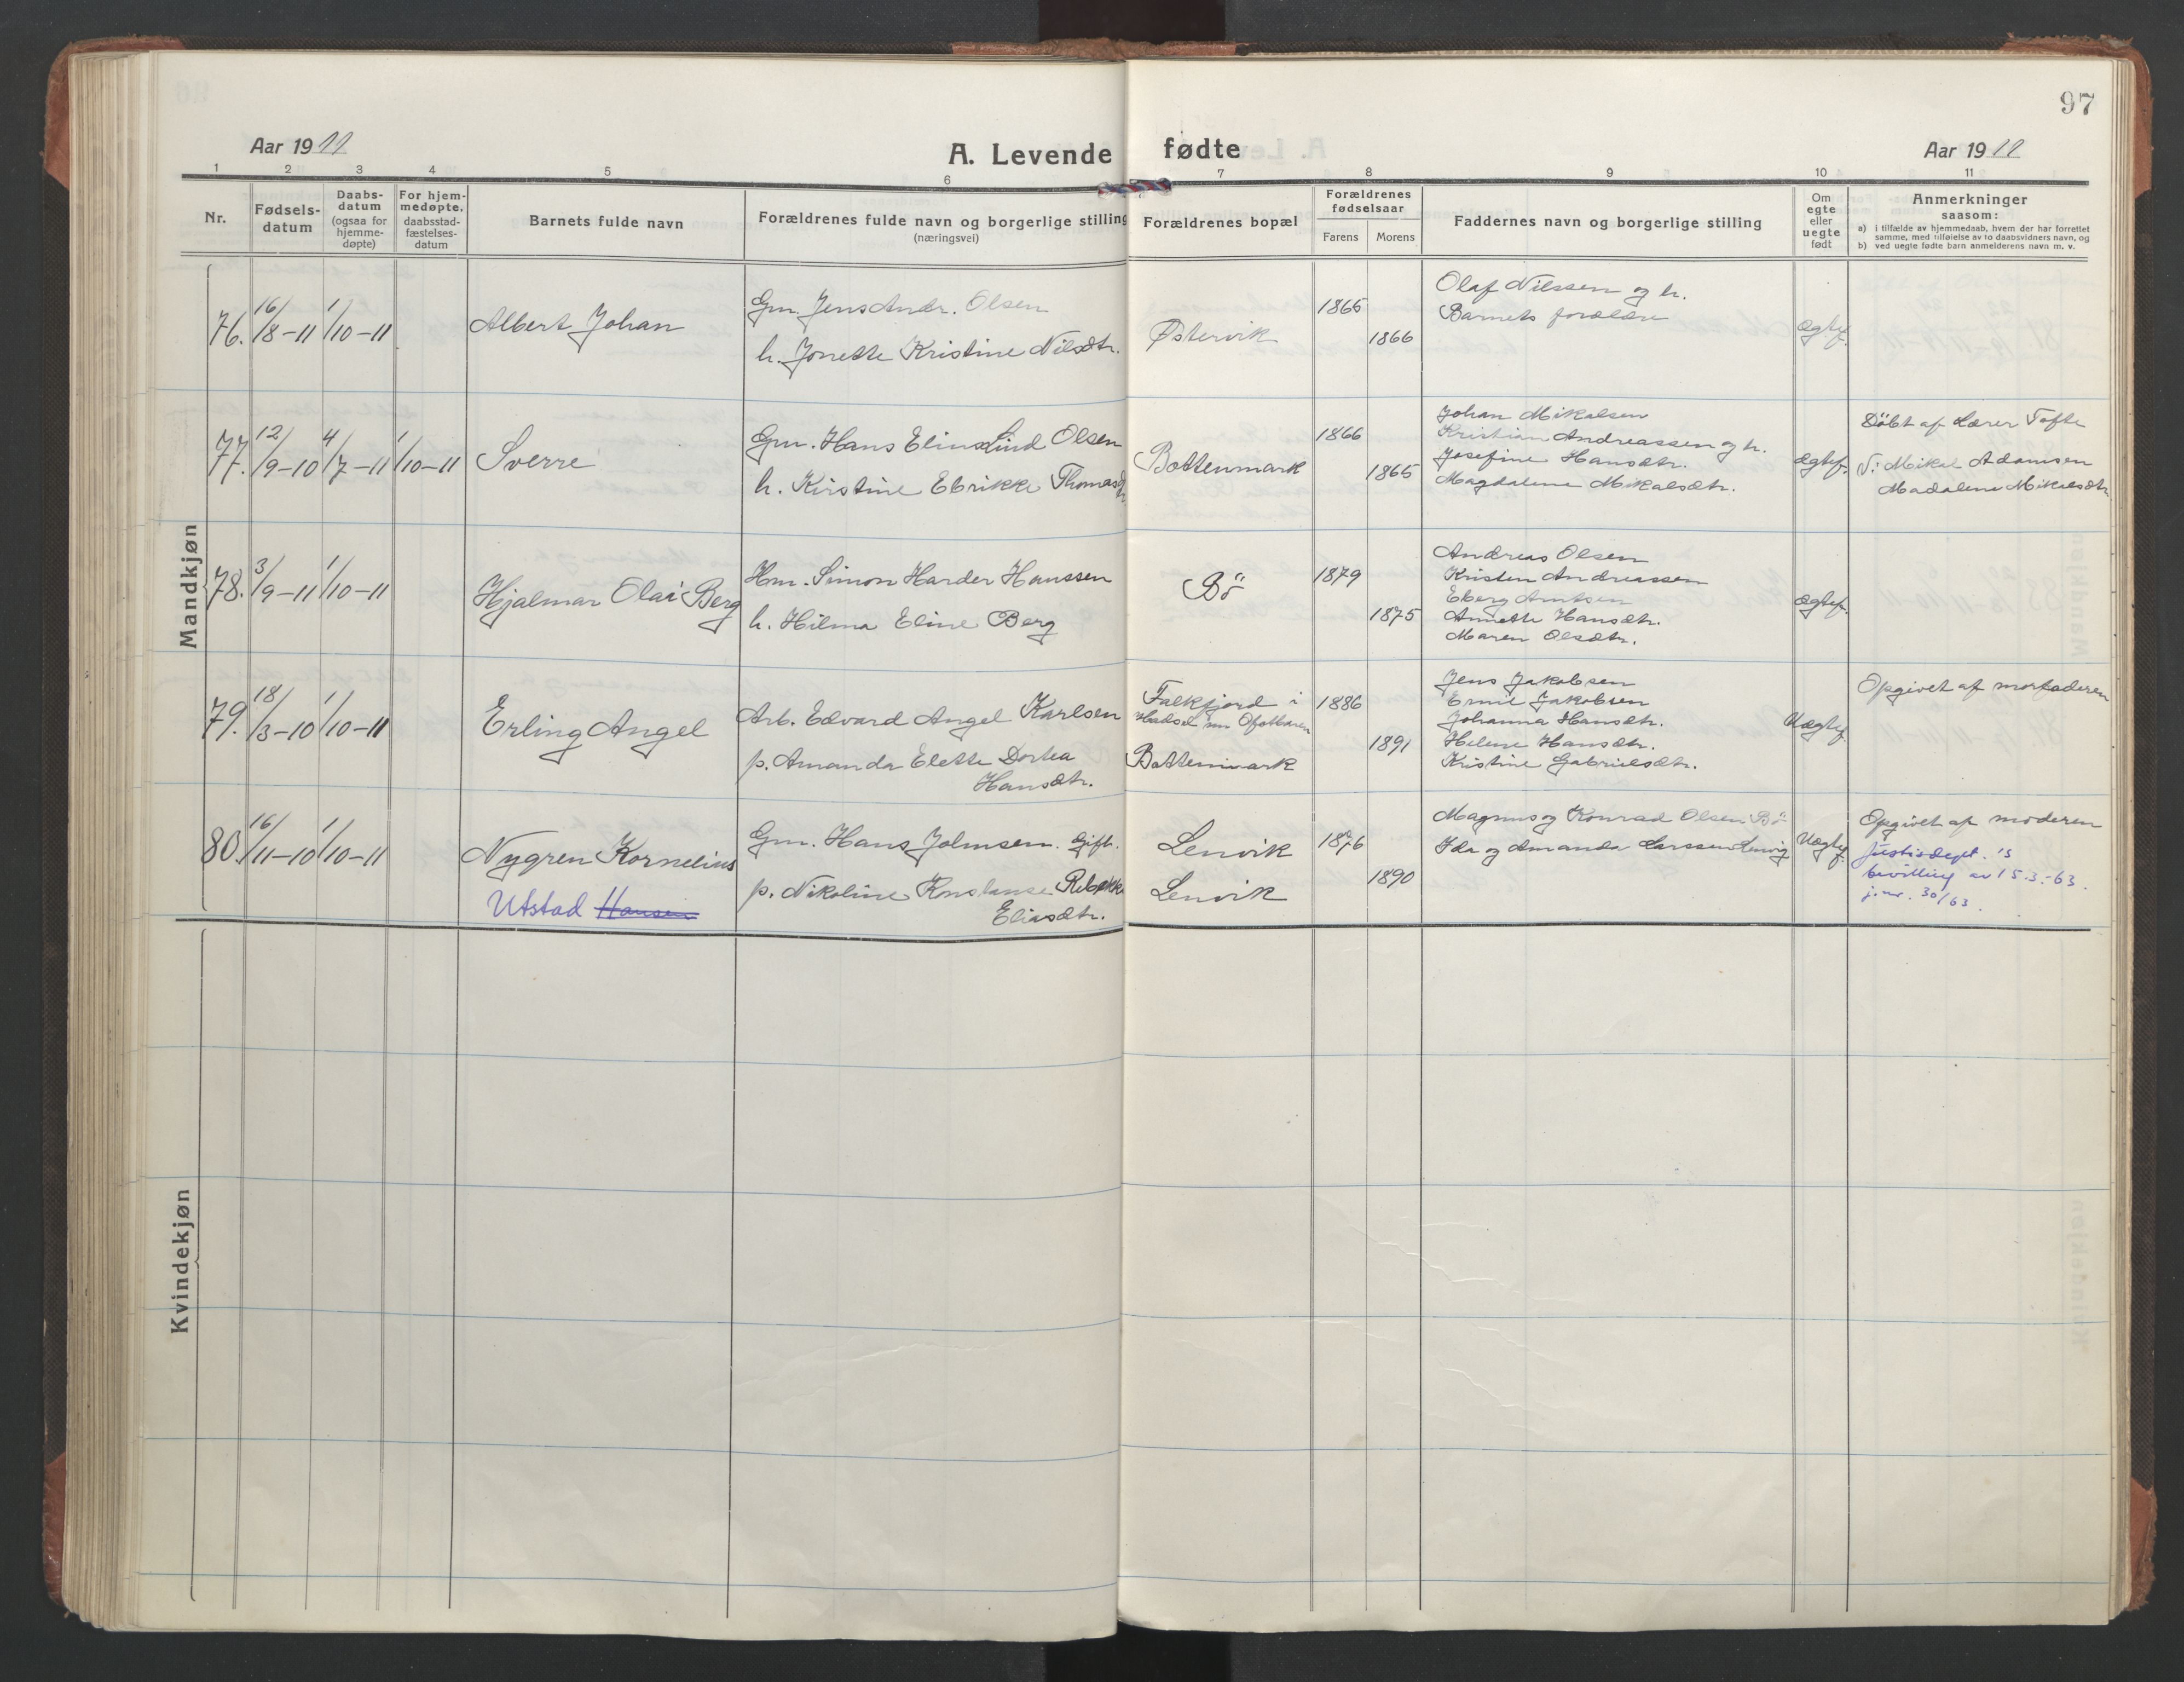 97
Aar 1911
A. Levende fødte
Aar 1911
1 2 3 4 5 6 7 8 9 10 11
Nr.
Fødsels-
datum
Daabs-
datum
(ogsaa for
hjemme-
døpte)
For hjem-
medøpte.
daabsstad-
fæstelses-
datum
Barnets fulde navn
Forældrenes fulde navn og borgerlige stilling
(næringsvei)
Forældrenes bopæl
Forældrenes
fødselsaar
Farens Morens
Faddernes navn og borgerlige stilling
Om
egte
eller
uegte
født
Anmerkninger
saasom:
a) i tilfælde av hjemmedaab, hvem der har forrettet
samme, med tilføielse av to daabsvidners navn, og
b) ved uegte fødte barn anmelderens navn m. v.
Mandkjøn
76. 16/8-11 1/10-11
Albert Johan
Gm. Jens Andr. Olsen
h. Jonette Kristine Nilsdtr.
Østervik
1865
1866
Olaf Nilssen og h.
Barnets forældre
ægtef.
77. 12/9-10 4/7-11 1/10-11
Sverre
Gm. Hans Elius Lind Olsen
h. Kirstine Ebrikke Thomasdtr.
Bottenmark
1866
1865
Johan Mikalsen
Kristian Andreassen og h.
Josefine Hansdtr.
Magdalena Mikalsdtr.
ægtef.
Döbt af Lærer Tofte
V: Mikal Adamsen
Madalena Mikalsdtr.
78. 3/9-11 1/10-11
Hjalmar Olai Berg
Hm. Simon Harder Hanssen
h. Hilma Eline Berg
Bö
1879
1875
Andreas Olsen
Kristen Andreassen
Eberg Arntsen
Annette Hansdtr.
Maren Olsdtr.
ægtef.
79. 18/3-10 1/10-11
Erling Angel
Arb. Edvard Angel Karlsen
p. Amanda Elette Dortea
Hansdtr.
Falkfjord i
Hadsel nu Ofotbanen
Bottenmark
1886
1891
Jens Jakobsen
Emil Jakobsen
Johanna Hansdtr.
Helene Hansdtr.
Kristine Gabrielsdtr.
Uægtef.
Opgivet af morfaderen
80. 16/11-10 1/10-11
Nygren Kornelius
Utstad Hansen
Gm. Hans Johnsen. Gift.
p. Nikoline Konstanse Rebekka
Eliasdtr.
Lenvik
Lenvik
1876
1890
Magnus og Konrad Olsen Bö
Ida og Amanda Larssen Lenvig
Uægtef.
Opgivet af moderen
Justisdept.'s
bevilling av 15.3.-63.
j.nr. 30/63.
Kvindekjøn